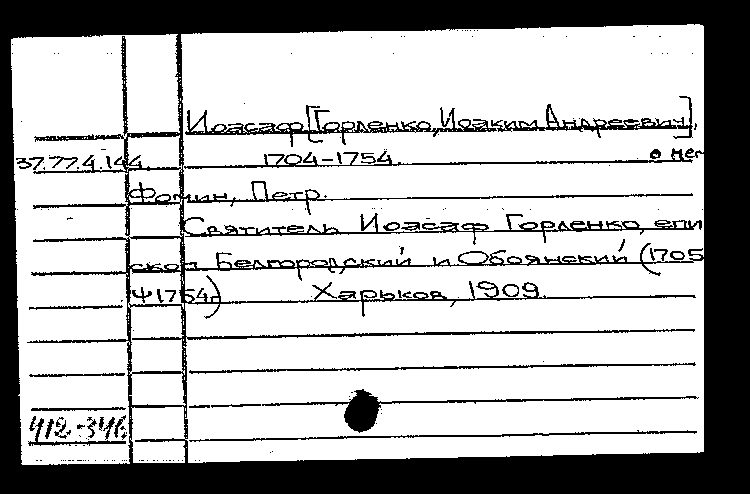 Иоасаф [Горленко, Иоаким Андреевич],
37.77.4.144. 1704-1754. о нем
Фомин, Петр.
Святитель Иоасаф Горленко, епи
скоп Белгородский и Обоянский (1705
Ψ1754г) Харьков, 1909.
412-346